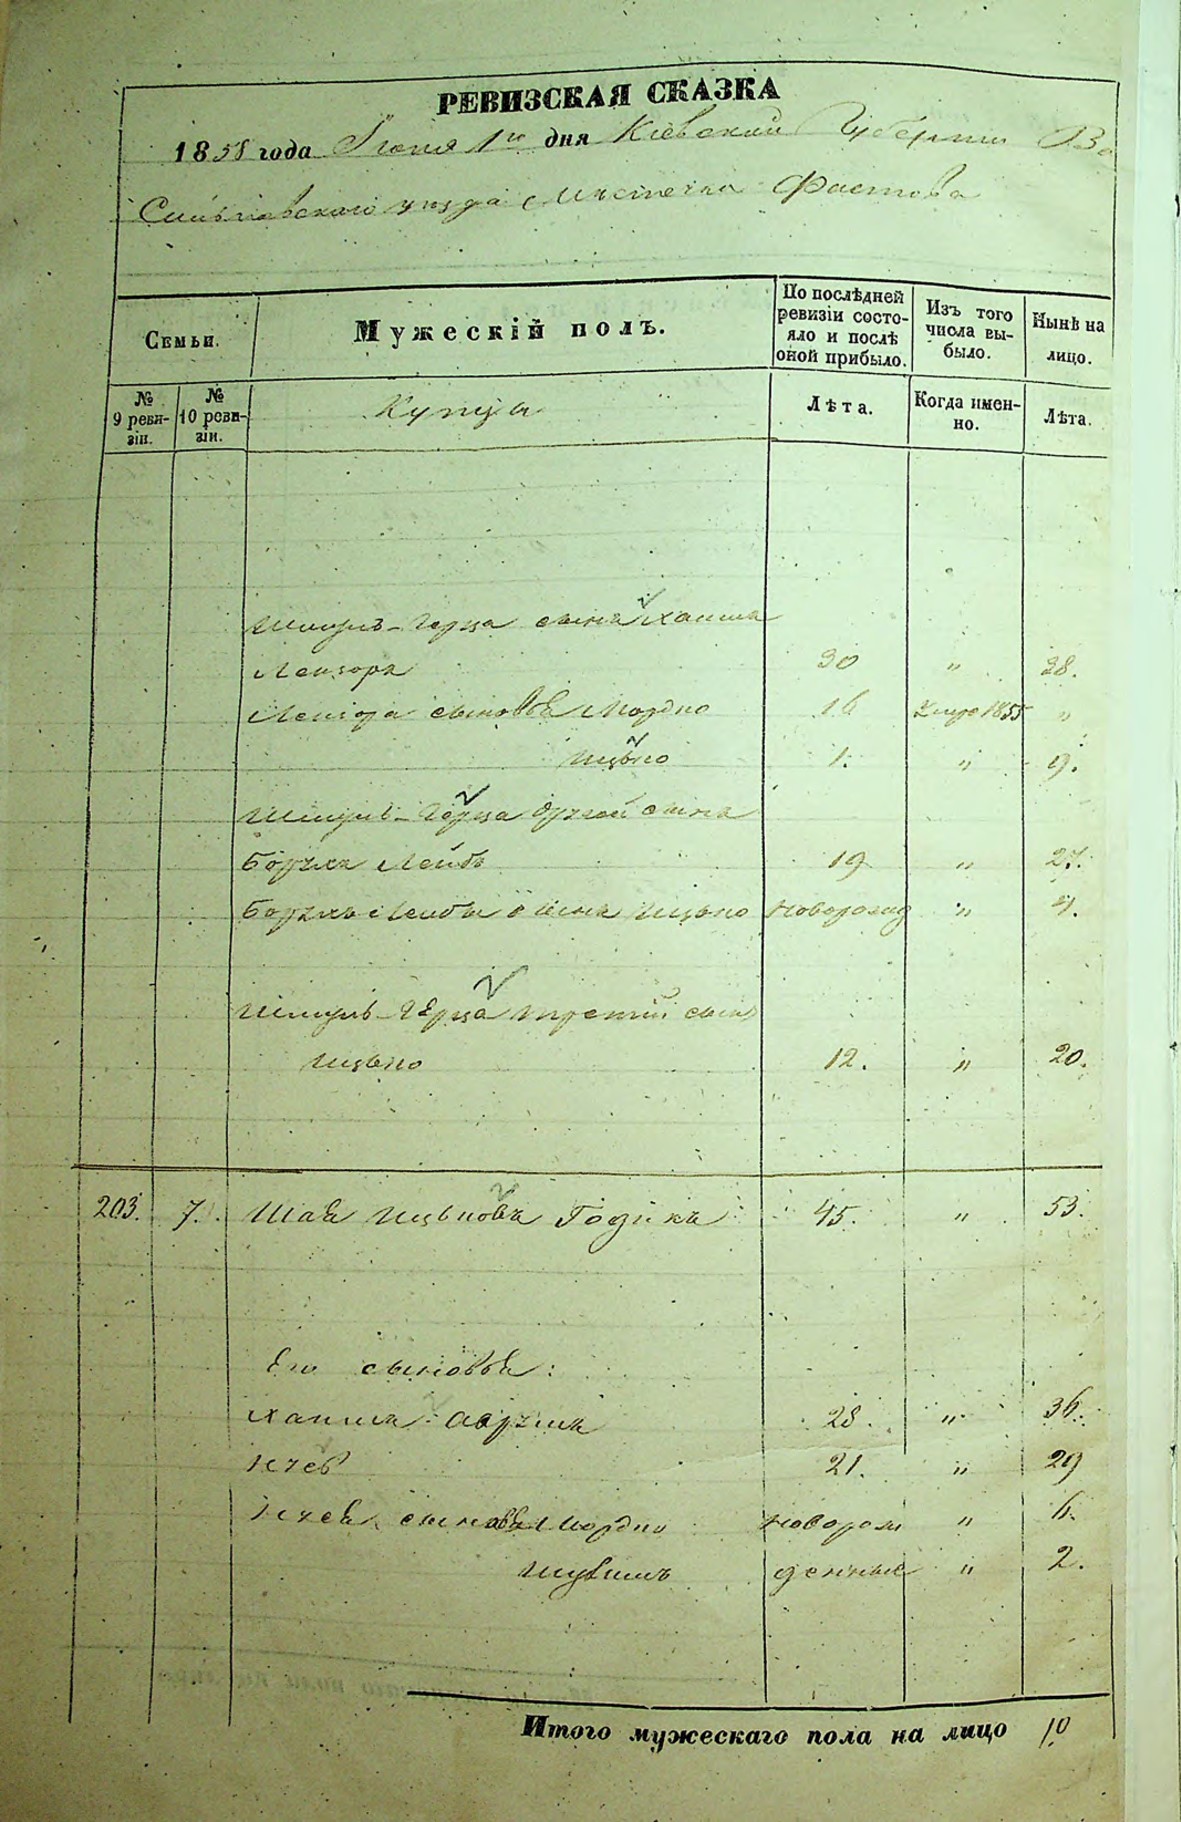 РЕВИЗСКАЯ СКАЗКА
1858 года Іюня 1го дня Кіевской Губерніи Ва
Сильковскаго уезда Местечка Фастова
Семьи.
Мужескій полъ.
По послѣдней ревизіи состояло и послѣ оной прибыло.
Изъ того числа выбыло.
Нынѣ на лицо.
№ 9 ревизіи.
№ 10 ревизіи.
Купца
Лѣта.
Когда именно.
Лѣта.
Шмуль-Герца сынъ Хаимъ
Лейзоръ 30 " 38.
Лейзора сыновья Мордко 16 Умре 1855 "
Ицько 1. " 9.
Шмуль-Герца другой сынъ
Борухъ Лейбъ 19 " 27.
Борухъ Лейбы сынъ Ицько новорожд "
Шмуль-Герца третій сынъ
Ицько 12. " 20.
203. 7. Шая Ицьковъ 45. " 53.
Его сыновья:
Хаимъ Аврумъ 28. " 36.
21. " 29
сыновья Мордко новорож " 6.
денные " 2.
Итого мужескаго пола на лицо 10